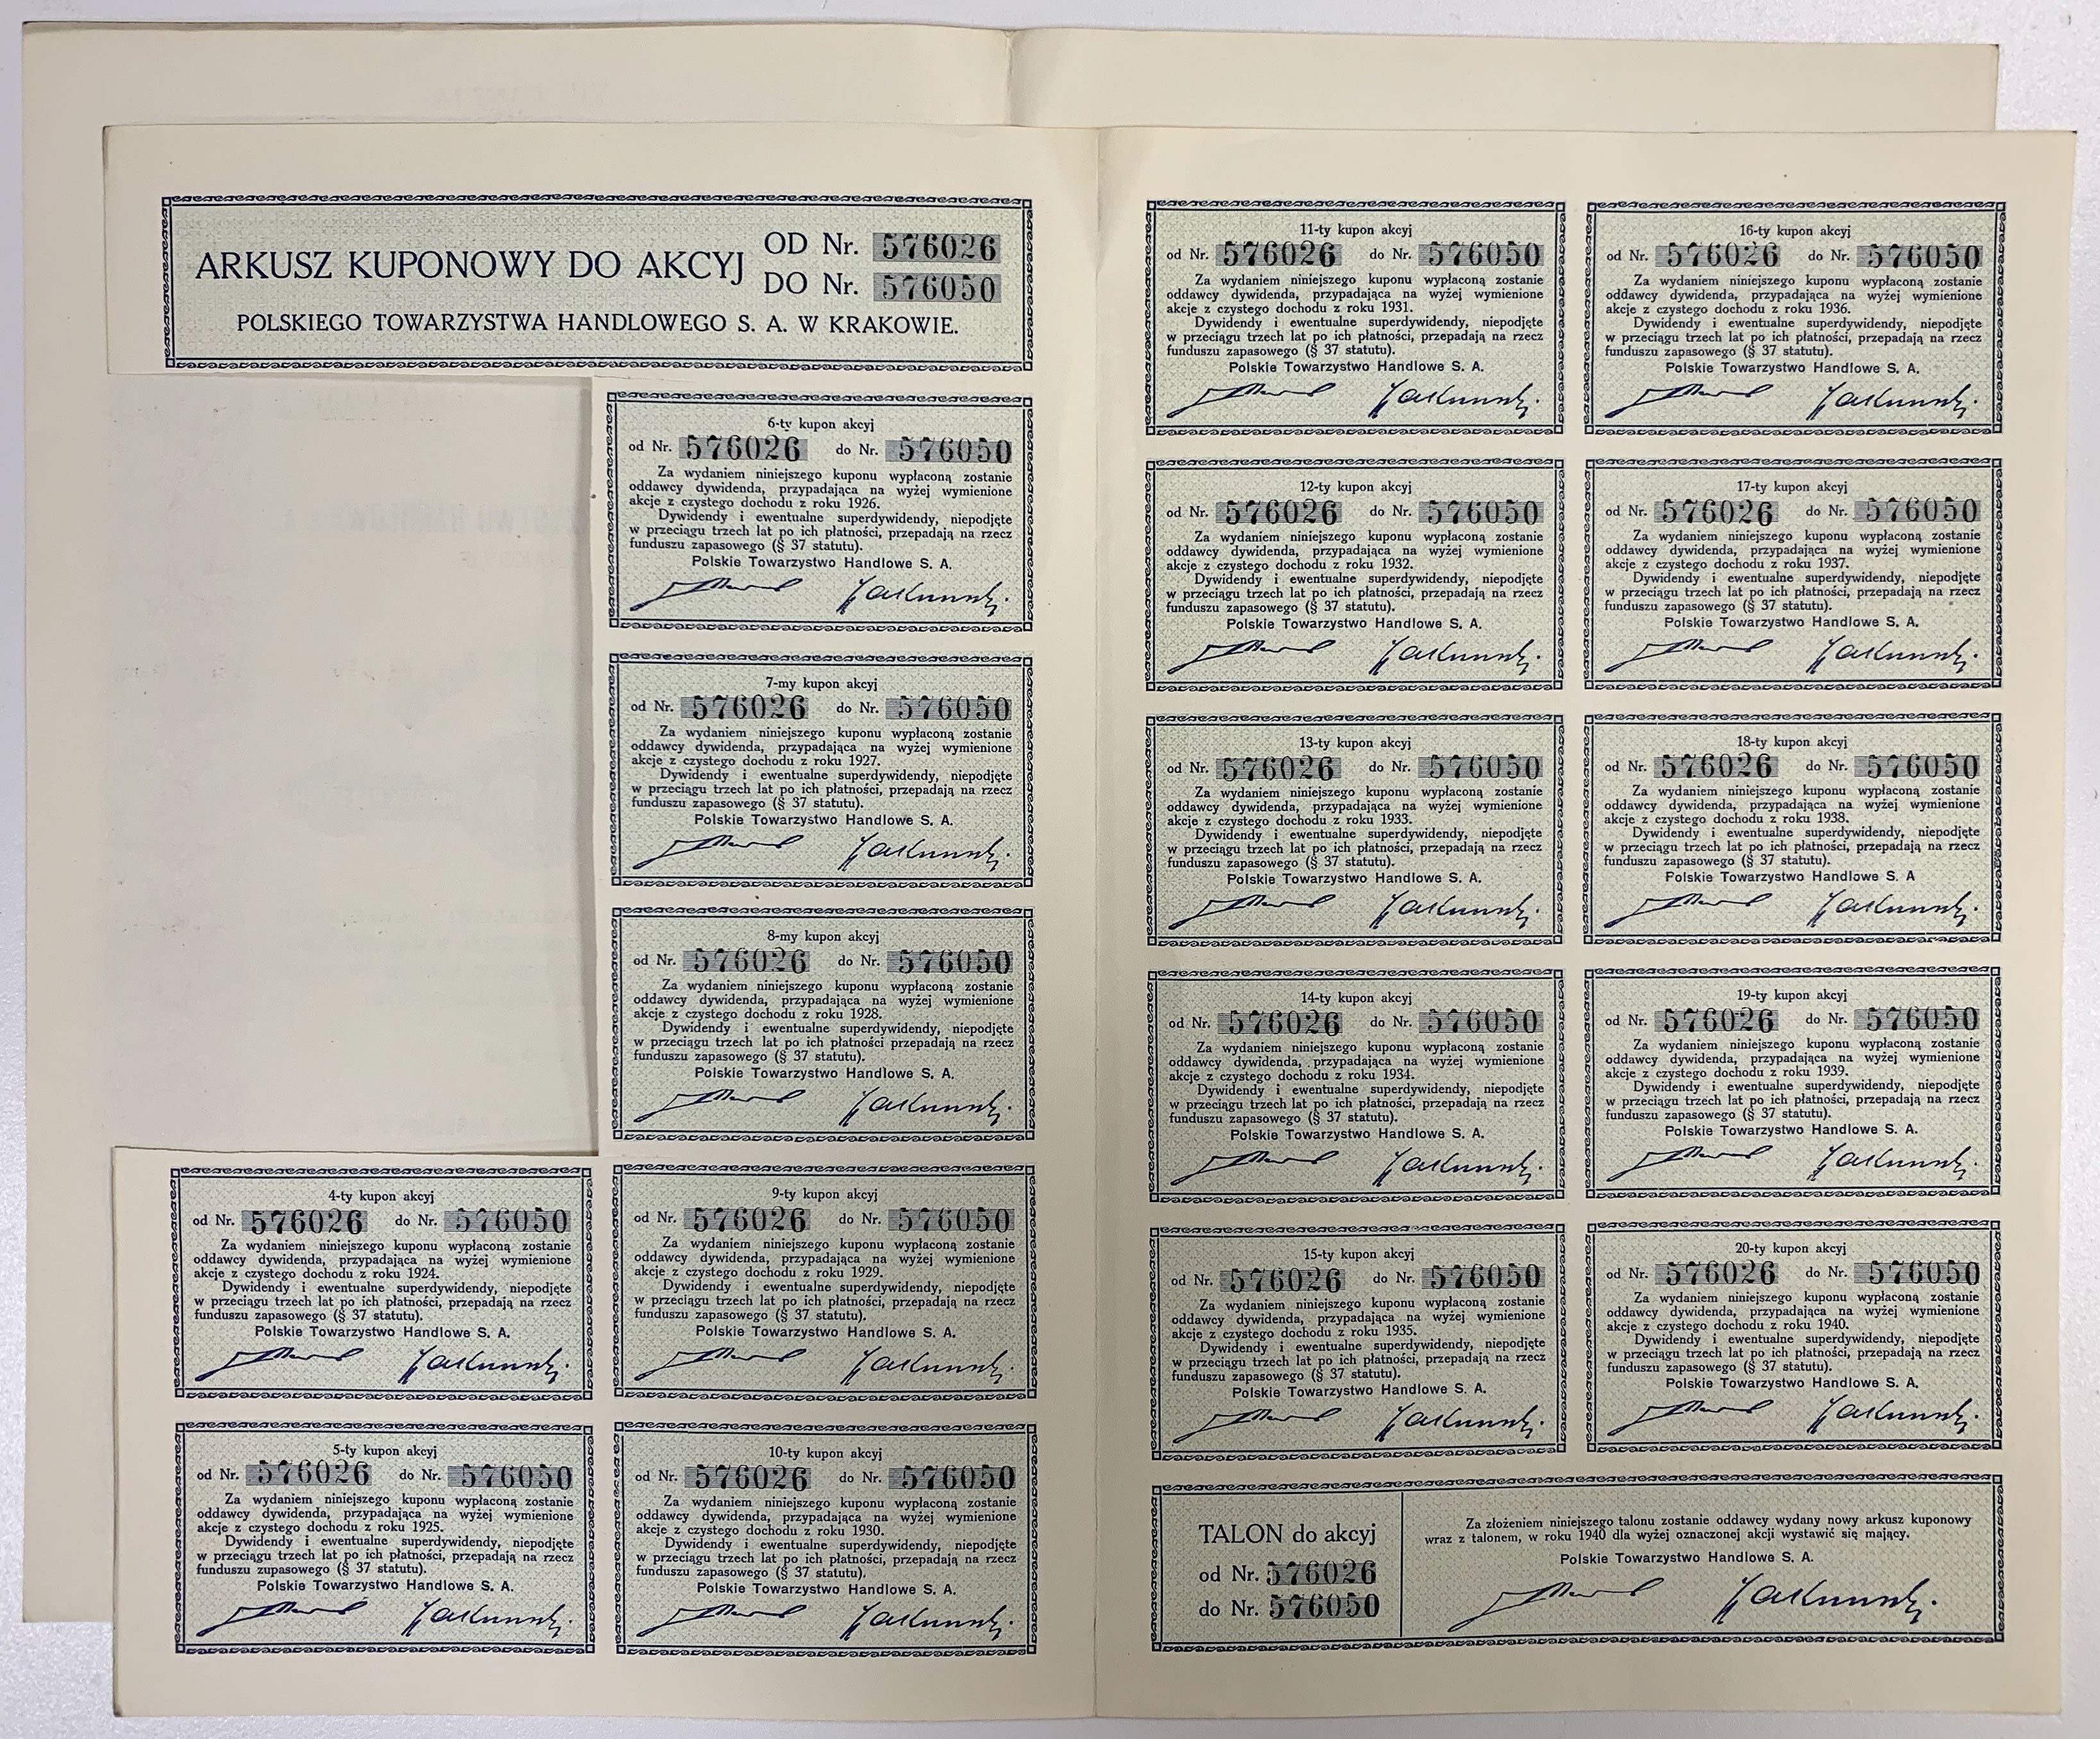 ARKUSZ KUPONOWY DO AKCYJ
OD Nr. 576026
DO Nr. 576050
POLSKIEGO TOWARZYSTWA HANDLOWEGO S. A. W KRAKOWIE.
4-ty kupon akcyj
od Nr. 576026 do Nr. 576050
Za wydaniem niniejszego kuponu wypłaconą zostanie
oddawcy dywidenda, przypadająca na wyżej wymienione
akcje z czystego dochodu z roku 1924.
Dywidendy i ewentualne superdywidendy, niepodjęte
w przeciągu trzech lat po ich płatności, przepadają na rzecz
funduszu zapasowego (§ 37 statutu).
Polskie Towarzystwo Handlowe S. A.
5-ty kupon akcyj
od Nr. 576026 do Nr. 576050
Za wydaniem niniejszego kuponu wypłaconą zostanie
oddawcy dywidenda, przypadająca na wyżej wymienione
akcje z czystego dochodu z roku 1925.
Dywidendy i ewentualne superdywidendy, niepodjęte
w przeciągu trzech lat po ich płatności, przepadają na rzecz
funduszu zupasowego (§ 37 statutu).
Polskie Towarzystwo Handlowe S. A.
6-ty kupon akcyj
od Nr. 576026 do Nr. 576050
Za wydaniem niniejszego kuponu wypłaconą zostanie
oddawcy dywidenda, przypadająca na wyżej wymienione
akcje z czystego dochodu z roku 1926.
Dywidendy i ewentualne superdywidendy, niepodjęte
w przeciągu trzech lat po ich płatności, przepadają na rzecz
funduszu zapasowego (§ 37 statutu).
Polskie Towarzystwo Handlowe S. A.
7-my kupon akcyj
od Nr. 576026 do Nr. 576050
Za wydaniem niniejszego kuponu wypłaconą zostanie
oddawcy dywidenda, przypadająca na wyżej wymienione
akcje z czystego dochodu z roku 1927.
Dywidendy i ewentualne superdywidendy, niepodjęte
w przeciągu trzech lat po ich płatności, przepadają na rzecz
funduszu zapasowego (§ 37 statutu).
Polskie Towarzystwo Handlowe S. A.
8-my kupon akcyj
od Nr. 576026 do Nr. 576050
Za wydaniem niniejszego kuponu wypłaconą zostanie
oddawcy dywidenda, przypadająca na wyżej wymienione
akcje z czystego dochodu z roku 1928.
Dywidendy i ewentualne superdywidendy, niepodjęte
w przeciągu trzech lat po ich płatności przepadają na rzecz
funduszu zapasowego (§ 37 statutu).
Polskie Towarzystwo Handlowe S. A.
9-ty kupon akcyj
od Nr. 576026 do Nr. 576050
Za wydaniem niniejszego kuponu wypłaconą zostanie
oddawcy dywidenda, przypadająca na wyżej wymienione
akcje z czystego dochodu z roku 1929.
Dywidendy i ewentualne superdywidendy, niepodjęte
w przeciągu trzech lat po ich płatności, przepadają na rzecz
funduszu zapasowego (§ 37 statutu).
Polskie Towarzystwo Handlowe S. A.
10-ty kupon akcyj
od Nr. 576026 do Nr. 576050
Za wydaniem niniejszego kuponu wypłaconą zostanie
oddawcy dywidenda, przypadająca na wyżej wymienione
akcje z czystego dochodu z roku 1930.
Dywidendy i ewentualne superdywidendy, niepodjęte
w przeciągu trzech lat po ich płatności, przepadają na rzecz
funduszu zapasowego (§ 37 statutu).
Polskie Towarzystwo Handlowe S. A.
11-ty kupon akcyj
od Nr. 576026 do Nr. 576050
Za wydaniem niniejszego kuponu wypłaconą zostanie
oddawcy dywidenda, przypadająca na wyżej wymienione
akcje z czystego dochodu z roku 1931.
Dywidendy i ewentualne superdywidendy, niepodjęte
w przeciągu trzech lat po ich płatności, przepadają na rzecz
funduszu zapasowego (§ 37 statutu).
Polskie Towarzystwo Handlowe S. A.
12-ty kupon akcyj
od Nr. 576026 do Nr. 576050
Za wydaniem niniejszego kuponu wypłaconą zostanie
oddawcy dywidenda, przypadająca na wyżej wymienione
akcje z czystego dochodu z roku 1932.
Dywidendy i ewentualne superdywidendy, niepodjęte
w przeciągu trzech lat po ich płatności, przepadają na rzecz
funduszu zapasowego (§ 37 statutu).
Polskie Towarzystwo Handlowe S. A.
13-ty kupon akcyj
od Nr. 576026 do Nr. 576050
Za wydaniem niniejszego kuponu wypłaconą zostanie
oddawcy dywidenda, przypadająca na wyżej wymienione
akcje z czystego dochodu z roku 1933.
Dywidendy i ewentualne superdywidendy, niepodjęte
w przeciągu trzech lat po ich płatności, przepadają na rzecz
funduszu zapasowego (§ 37 statutu).
Polskie Towarzystwo Handlowe S. A.
14-ty kupon akcyj
od Nr. 576026 do Nr. 576050
Za wydaniem niniejszego kuponu wypłaconą zostanie
oddawcy dywidenda, przypadająca na wyżej wymienione
akcje z czystego dochodu z roku 1934.
Dywidendy i ewentualne superdywidendy, niepodjęte
w przeciągu trzech lat po ich płatności, przepadają na rzecz
funduszu zapasowego (§ 37 statutu).
Polskie Towarzystwo Handlowe S. A.
15-ty kupon akcyj
od Nr. 576026 do Nr. 576050
Za wydaniem niniejszego kuponu wypłaconą zostanie
oddawcy dywidenda, przypadająca na wyżej wymienione
akcje z czystego dochodu z roku 1935.
Dywidendy i ewentualne superdywidendy, niepodjęte
w przeciągu trzech lat po ich płatności, przepadają na rzecz
funduszu zapasowego (§ 37 statutu).
Polskie Towarzystwo Handlowe S. A.
16-ty kupon akcyj
od Nr. 576026 do Nr. 576050
Za wydaniem niniejszego kuponu wypłaconą zostanie
oddawcy dywidenda, przypadająca na wyżej wymienione
akcje z czystego dochodu z roku 1936.
Dywidendy i ewentualne superdywidendy, niepodjęte
w przeciągu trzech lat po ich płatności, przepadają na rzecz
funduszu zapasowego (§ 37 statutu).
Polskie Towarzystwo Handlowe S. A.
17-ty kupon akcyj
od Nr. 576026 do Nr. 576050
Za wydaniem niniejszego kuponu wypłaconą zostanie
oddawcy dywidenda, przypadająca na wyżej wymienione
akcje z czystego dochodu z roku 1937.
Dywidendy i ewentualne superdywidendy, niepodjęte
w przeciągu trzech lat po ich płatności, przepadają na rzecz
funduszu zapasowego (§ 37 statutu).
Polskie Towarzystwo Handlowe S. A.
18-ty kupon akcyj
od Nr. 576026 do Nr. 576050
Za wydaniem niniejszego kuponu wypłaconą zostanie
oddawcy dywidenda, przypadająca na wyżej wymienione
akcje z czystego dochodu z roku 1938.
Dywidendy i ewentualne superdywidendy, niepodjęte
w przeciągu trzech lat po ich płatności, przepadają na rzecz
funduszu zapasowego (§ 37 statutu).
Polskie Towarzystwo Handlowe S. A
19-ty kupon akcyj
od Nr. 576026 do Nr. 576050
Za wydaniem niniejszego kuponu wypłaconą zostanie
oddawcy dywidenda, przypadająca na wyżej wymienione
akcje z czystego dochodu z roku 1939.
Dywidendy i ewentualne superdywidendy, niepodjęte
w przeciągu trzech lat po ich płatności, przepadają na rzecz
funduszu zapasowego (§ 37 statutu).
Polskie Towarzystwo Handlowe S. A.
20-ty kupon akcyj
od Nr. 576026 do Nr. 576050
Za wydaniem niniejszego kuponu wypłaconą zostanie
oddawcy dywidenda, przypadająca na wyżej wymienione
akcje z czystego dochodu z roku 1940.
Dywidendy i ewentualne superdywidendy, niepodjęte
w przeciągu trzech lat po ich płatności, przepadają na rzecz
funduszu zapasowego (§ 37 statutu).
Polskie Towarzystwo Handlowe S. A.
TALON do akcyj
od Nr. 576026
do Nr. 576050
Za złożeniem niniejszego talonu zostanie oddawcy wydany nowy arkusz kuponowy
wraz z talonem, w roku 1940 dla wyżej oznaczonej akcji wystawić się mający.
Polskie Towarzystwo Handlowe S. A.